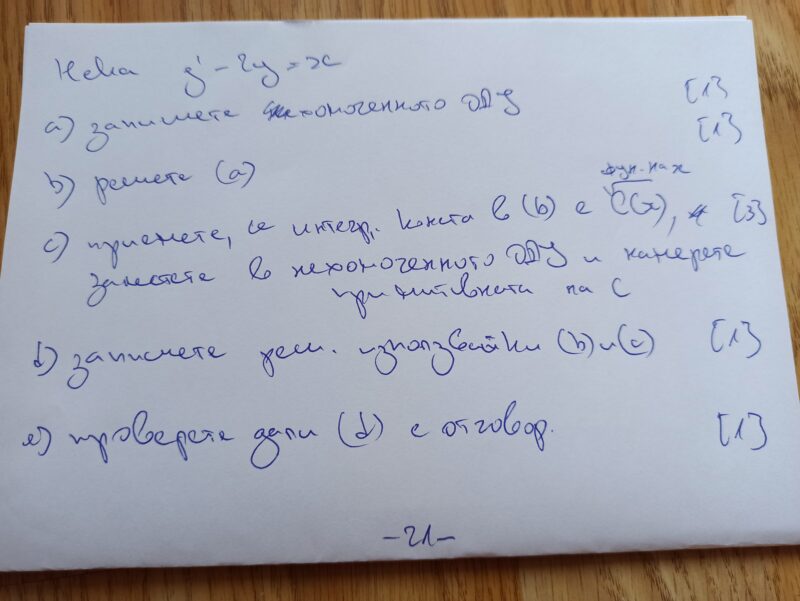 Нека y' - 2y = x
a) запишете хомогенното ОДУ [1]
b) решете (a) [1]
фун. на x
c) приемете, че интегр. конста в (b) е C(x), [3]
заместете в нехомогенното ОДУ и намерете
примитивната на C
d) запишете реш. използвайки (b) и (c) [1]
e) проверете дали (d) е отговор. [1]
-21-